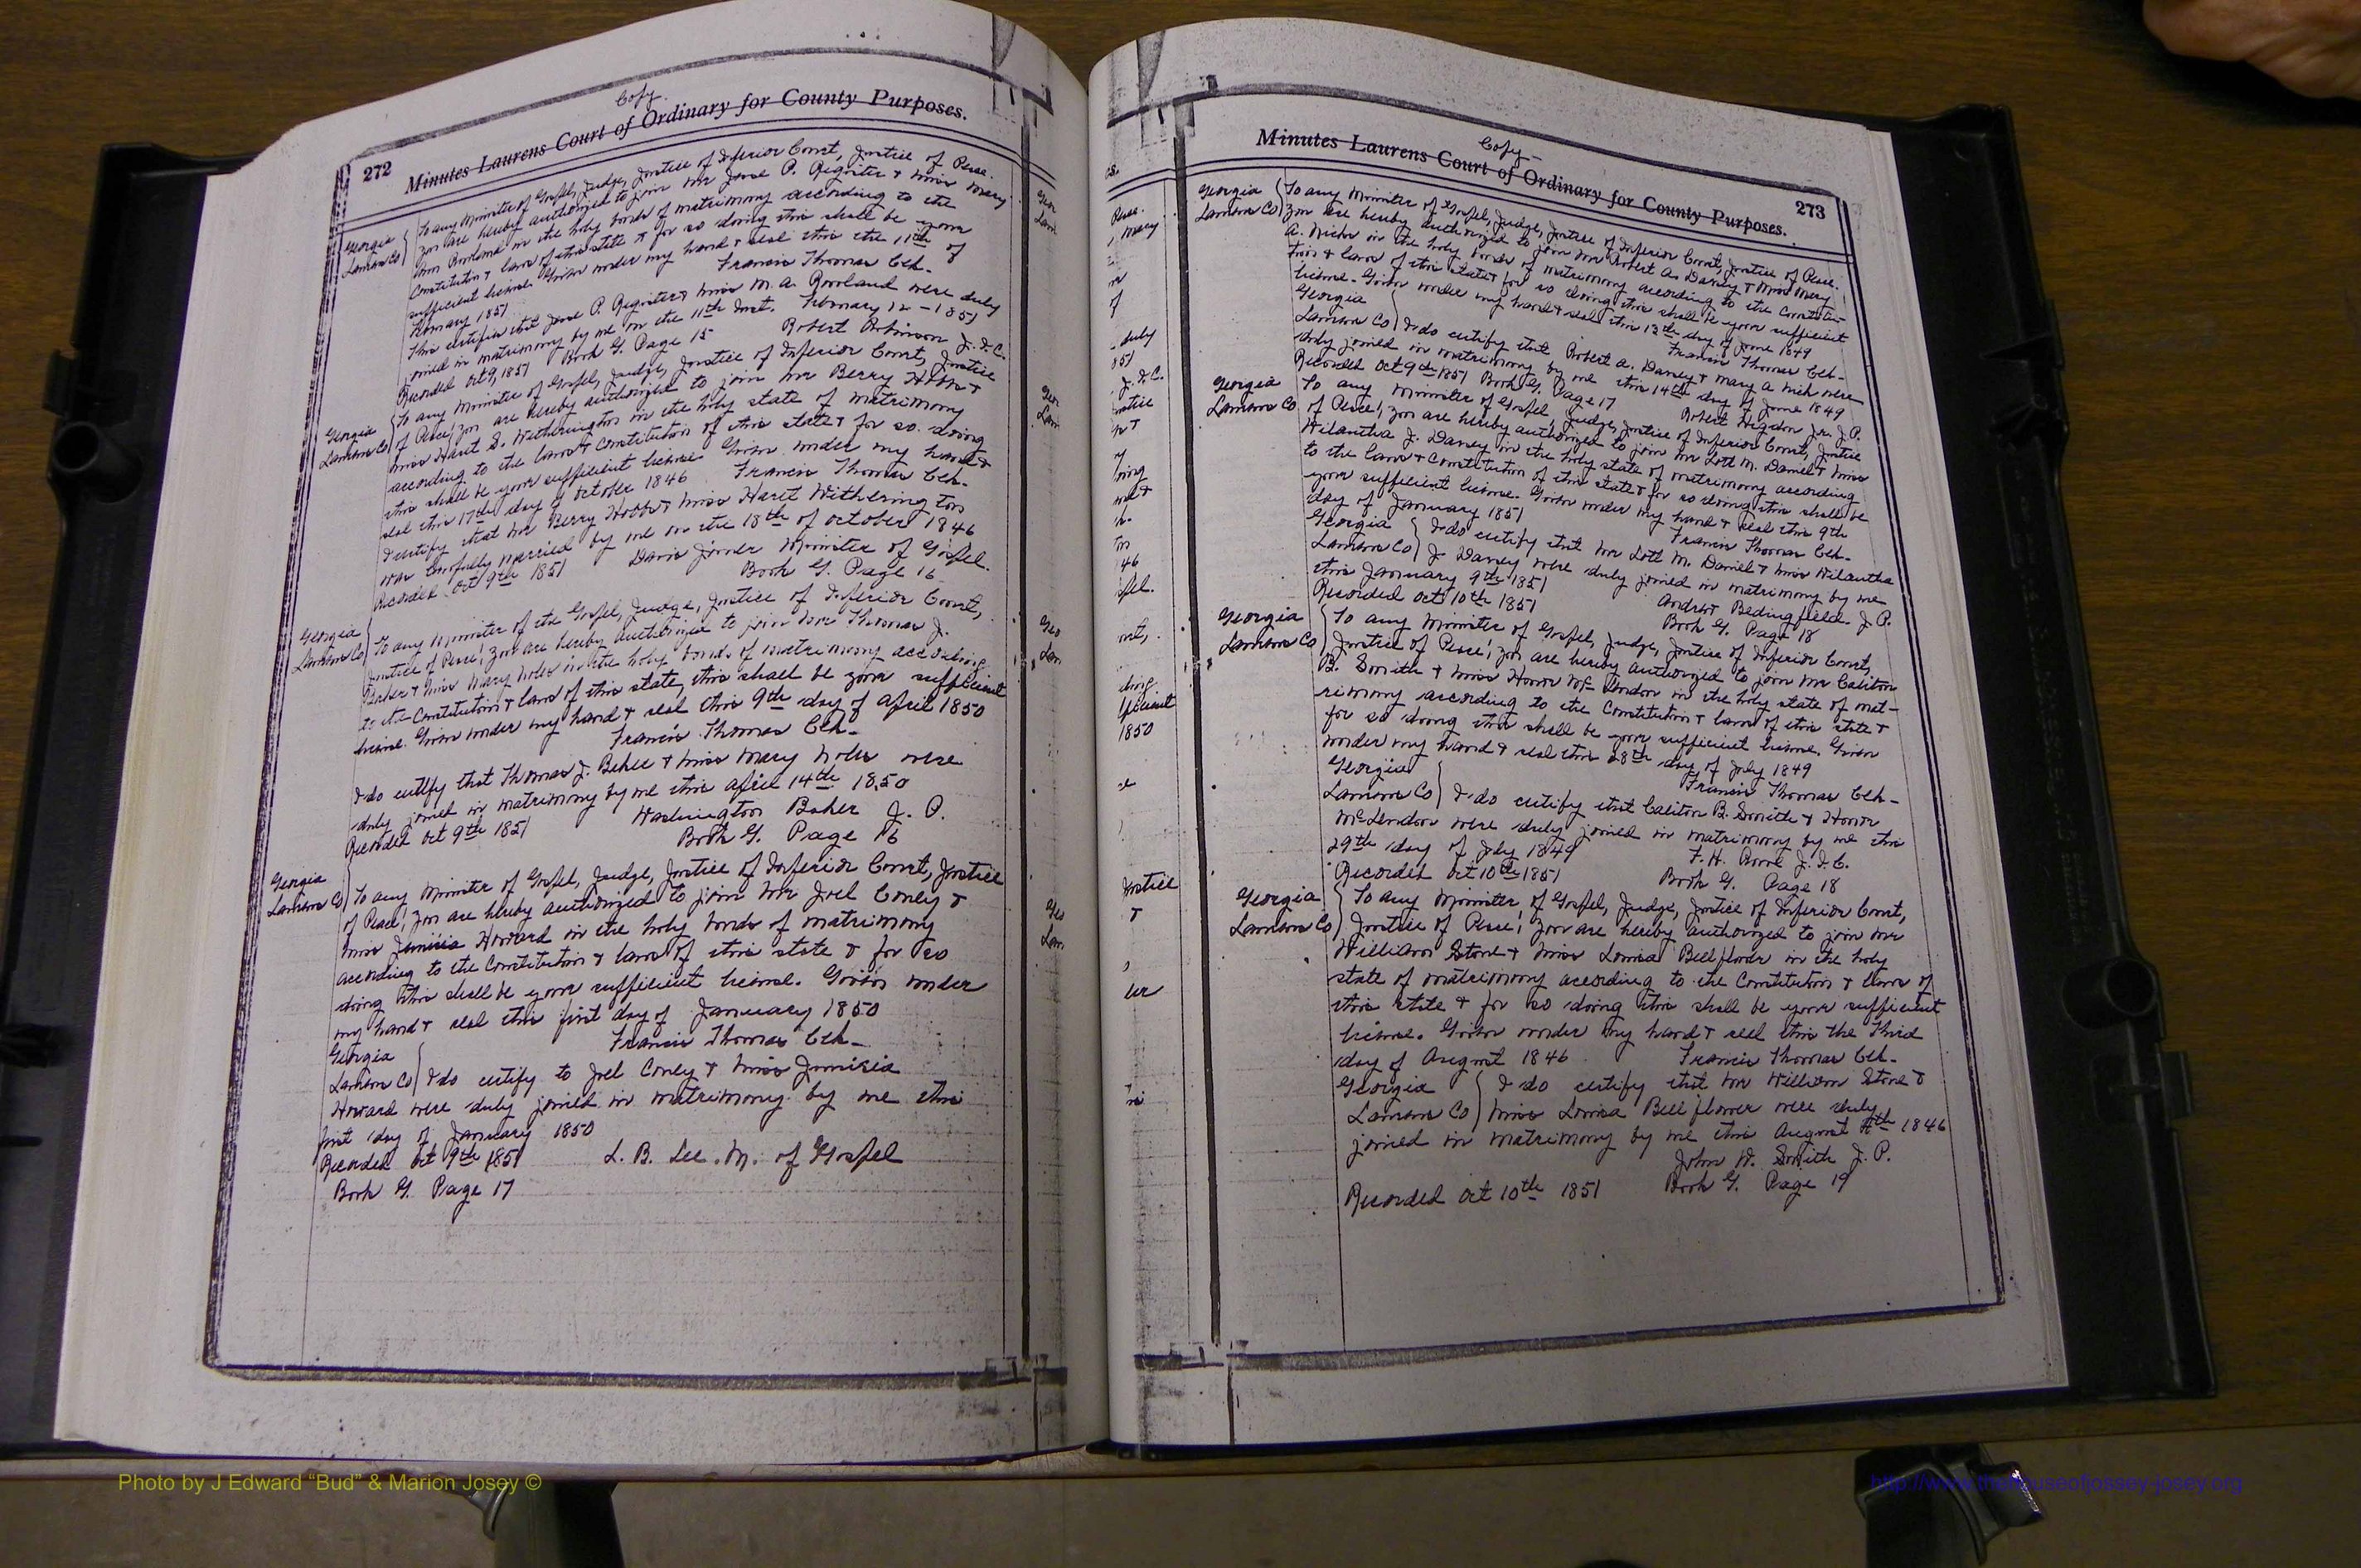 Copy
272 Minutes Laurens Court of Ordinary for County Purposes.
Georgia
Laurens Co
To any Minister of Gospel, Judge, Justice of Inferior Court, Justice of Peace.
You are hereby authorized to join Mr Jesse P. Register & Miss Mary
Ann Rowland in the holy bonds of matrimony according to the
Constitution & laws of this state & for so doing this shall be your
sufficient license. Given under my hand & seal this the 11th of
February 1851 Francis Thomas Clk.
This certifies that Jesse P. Register & Miss M. A. Rowland were duly
joined in matrimony by me on the 11th Inst. February 12 - 1851
Robert Robinson J. I. C.
Recorded Oct 9, 1851 Book G. Page 15
Georgia
Laurens Co
To any Minister of Gospel, Judge, Justice of Inferior Court, Justice
of Peace, you are hereby authorized to join Mr Berry Hobbs &
Miss Harit S. Witherington in the holy state of matrimony
according to the laws & Constitution of this state & for so doing
this shall be your sufficient license Given under my hand &
seal this 17th day of October 1846 Francis Thomas Clk.
I certify that Mr Berry Hobbs & Miss Harit Witherington
was lawfully married by me on the 18th of October 1846
Davis Joiner Minister of Gospel.
Recorded Oct 9th 1851 Book G. Page 16
Georgia
Laurens Co
To any Minister of the Gospel, Judge, Justice of Inferior Court,
Justice of Peace! you are hereby authorized to join Mr Thomas J.
Baker & Miss Mary in the holy bonds of matrimony according
to the Constitution & laws of this state, this shall be your sufficient
license. Given under my hand & seal this 9th day of April 1850
Francis Thomas Clk-
I do certify that Thomas J. Baker & Miss Mary were
duly joined in matrimony by me this April 14th 1850
Washington Baker J. P.
Recorded Oct 9th 1851 Book G. Page 16
Georgia
Laurens Co
To any Minister of Gospel, Judge, Justice of Inferior Court, Justice
of Peace! you are hereby authorized to join Mr Joel Coney &
Miss Howard in the holy bonds of matrimony
according to the Constitution & laws of this state & for so
doing this shall be your sufficient license. Given under
my hand & seal this first day of January 1850
Francis Thomas Clk-
Georgia
Laurens Co I do certify to Joel Coney & Miss
Howard were duly joined in matrimony by me this
first day of January 1850
Recorded Oct 9th 1851 L. B. Lee. M. of Gospel
Book G. Page 17
Copy-
Minutes Laurens Court of Ordinary for County Purposes. 273
Georgia
Laurens Co
To any Minister of Gospel, Judge, Justice of Inferior Court, Justice of Peace.
You are hereby authorized to join Mr Robert A. Daney & Miss Mary
A. in the holy bonds of matrimony according to the Constitu-
tion & laws of this state & for so doing this shall be your sufficient
license. Given under my hand & seal this 13th day of June 1849
Georgia Francis Thomas Clk-
Laurens Co I do certify that Robert A. Daney & Mary A were
duly joined in matrimony by me this 14th day of June 1849
Robert Higdon Jr. J. P.
Recorded Oct 9th 1851 Book G. Page 17
Georgia
Laurens Co
To any Minister of Gospel, Judge, Justice of Inferior Court, Justice
of Peace!, you are hereby authorized to join Mr Lott M. Daniel & Miss
Wilantha J. Daney in the holy state of matrimony according
to the laws & Constitution of this state & for so doing this shall be
your sufficient license. Given under my hand & seal this 9th
day of January 1851 Francis Thomas Clk-
Georgia
Laurens Co I do certify that Mr Lott M. Daniel & Miss Wilantha
J. Daney were duly joined in matrimony by me
this January 9th 1851 Andrew Bedingfield J. P.
Recorded Oct 10th 1851 Book G. Page 18
Georgia
Laurens Co
To any Minister of Gospel, Judge, Justice of Inferior Court,
Justice of Peace!, you are hereby authorized to join Mr Caliton
B. Smith & Miss Honor McLendon in the holy state of mat-
rimony according to the Constitution & laws of this state &
for so doing this shall be your sufficient license. Given
under my hand & seal this 28th day of July 1849
Georgia Francis Thomas Clk-
Laurens Co I do certify that Caliton B. Smith & Honor
McLendon were duly joined in matrimony by me this
29th day of July 1849 F. H. J. I. C.
Recorded Oct 10th 1851 Book G. Page 18
Georgia
Laurens Co
To any Minister of Gospel, Judge, Justice of Inferior Court,
Justice of Peace! you are hereby authorized to join Mr
William Stone & Miss Louisa Bellflower in the holy
state of matrimony according to the Constitution & laws of
this state & for so doing this shall be your sufficient
license. Given under my hand & seal this the Third
day of August 1846 Francis Thomas Clk-
Georgia I do certify that Mr William Stone &
Laurens Co Miss Louisa Bellflower were duly
joined in matrimony by me this August 1846
John W. Smith J. P.
Recorded Oct 10th 1851 Book G. Page 19
Photo by J Edward "Bud" & Marion Josey ©
http://www.thehouseofjossey-josey.org